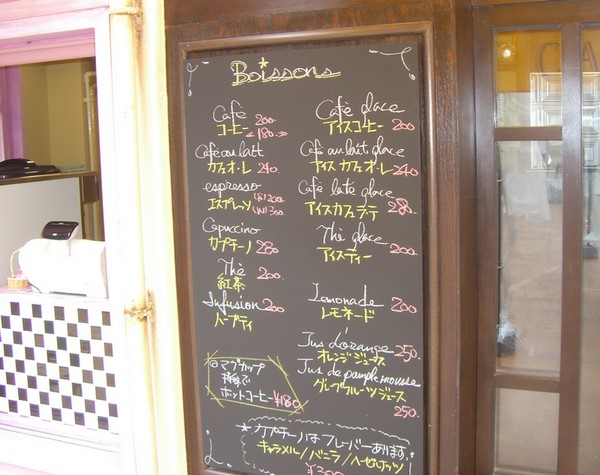 Boissons
Café 200.
コーヒー <180.>
Café au lait
カフェオ・レ 240.
espresso
エスプレッソ (S) 200 (W) 300
Capuccino
カプチーノ 280
Thé
紅茶 200.
Infusion 200
ハーブティ
マグカップ
持参で
ホットコーヒー ¥180
Café glace
アイスコーヒー 200
Café au lait glace
アイスカフェオ・レ 240
Café laté glace
アイスカフェラテ 280.
Thé glace
アイスティー 200.
Lemonade
レモネード 200
Jus d'orange
オレンジジュース 250.
Jus de pamplemousse
グレープフルーツジュース
250.
★カプチーノはフレーバーあります。
キャラメル/バニラ/ヘーゼルナッツ
¥300
CA